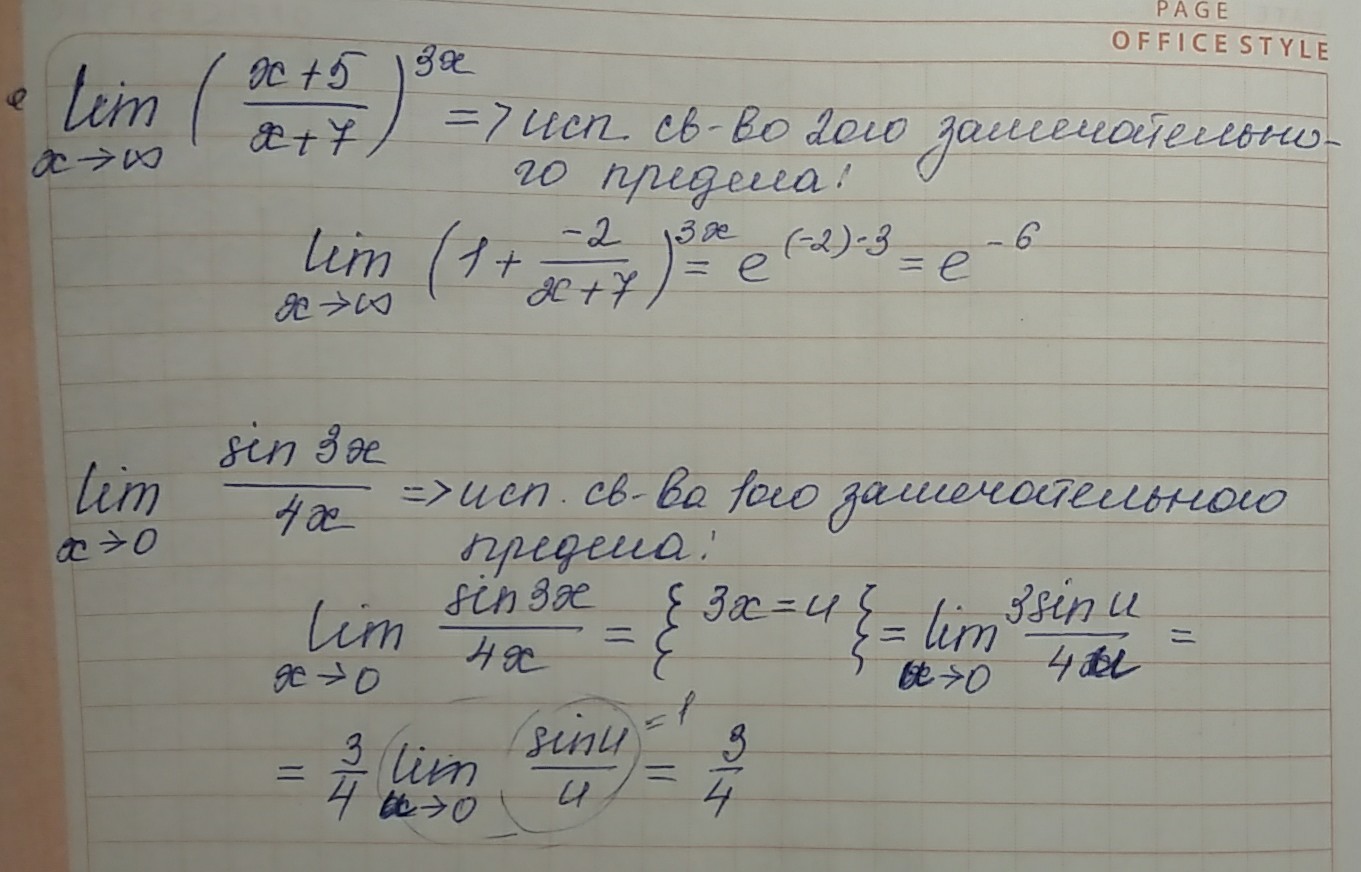 PAGE
OFFICE STYLE
lim (x+5 / x+7)^3x => исп. св-во 2ого замечательно-
x→∞
го предела:
lim (1 + -2 / x+7)^3x = e^(-2)·3 = e^-6
x→∞
lim sin 3x / 4x => исп. св-ва 1ого замечательного
x→0
предела:
lim sin 3x / 4x = { 3x = u } = lim 3 sin u / 4u =
x→0 u→0
= 3/4 lim sin u / u = 3/4
= 1
u→0